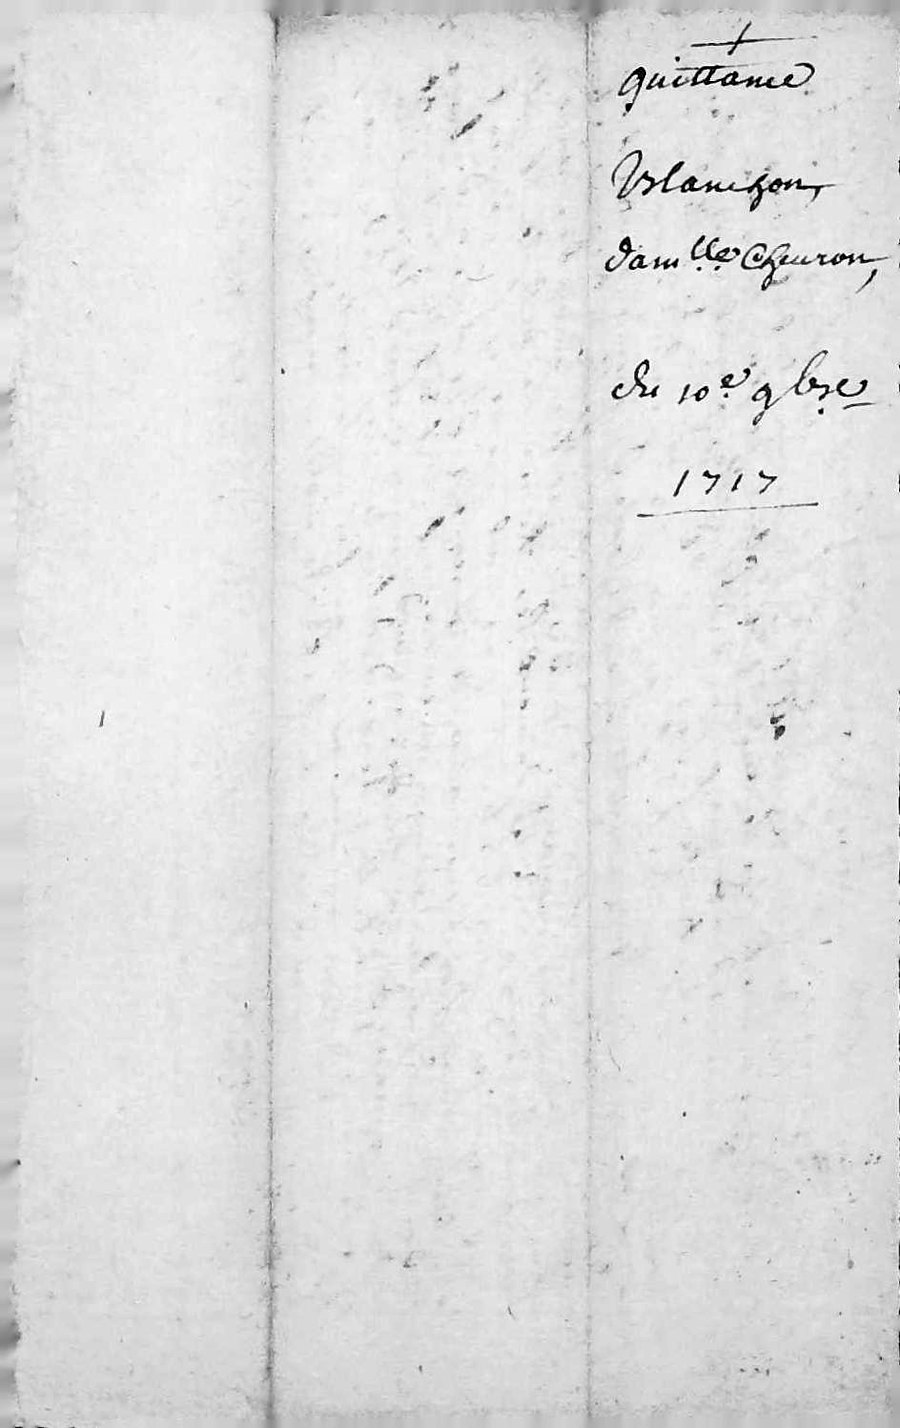 quittance
Blanchon,
dam.lle Cheuron,
du 10.e 9bre
1717